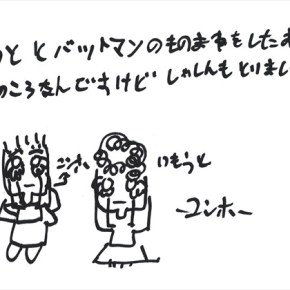 とバットマンのものまねをした
ころなんですけど しゃしんもとりまし
ユンホ
いもうと
ユンホー